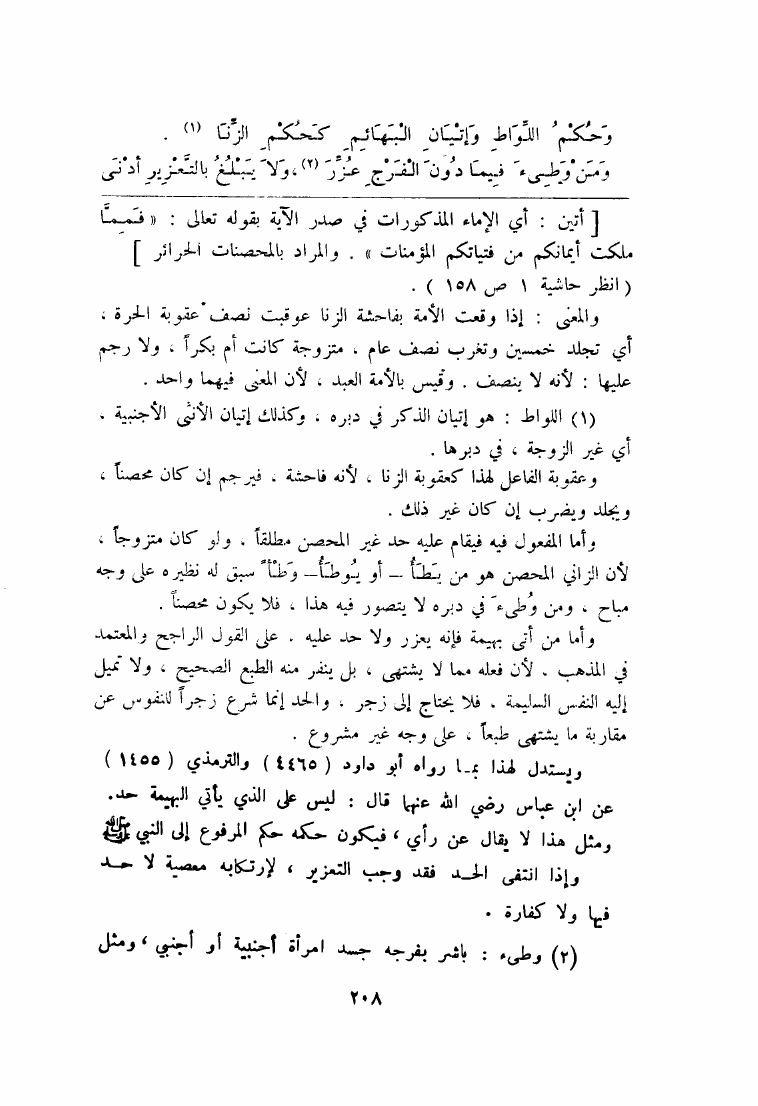 وَحُكْمُ اللِّوَاطِ وَإِتْيَانِ الْبَهَائِمِ كَحُكْمِ الزِّنَا (١) .
وَمَنْ وَطِىءَ فِيمَا دُونَ الْفَرْجِ عُزِّرَ (٢) ، وَلاَ يَبْلُغُ بالتَّعْزِيرِ أدْنَى
[ أتين : أي الإماء المذكورات في صدر الآية بقوله تعالى : « فَمِمَّا
ملكت أيمانكم من فتياتكم المؤمنات » . والمراد بالمحصنات الحرائر ]
( انظر حاشية ١ ص ١٥٨ ) .
والمعنى : إذا وقعت الأمة بفاحشة الزنا عوقبت نصف عقوبة الحرة ،
أي تجلد خمسين وتغرب نصف عام ، متزوجة كانت أم بكراً ، ولا رجم
عليها : لأنه لا ينصف . وقيس بالأمة العبد ، لأن المعنى فيهما واحد .
(١) اللواط : هو إتيان الذكر في دبره ، وكذلك إتيان الأنثى الأجنبية ،
أي غير الزوجة ، في دبرها .
وعقوبة الفاعل لهذا كعقوبة الزنا ، لأنه فاحشة ، فيرجم إن كان محصناً ،
ويجلد ويضرب إن كان غير ذلك .
وأما المفعول فيه فيقام عليه حد غير المحصن مطلقاً ، ولو كان متزوجاً ،
لأن الزاني المحصن هو من يَطَأُ – أو يُوطَأُ – وَطْأً سبق له نظيره على وجه
مباح ، ومن وُطىءَ في دبره لا يتصور فيه هذا ، فلا يكون محصناً .
وأما من أتى بهيمة فإنه يعزر ولا حد عليه . على القول الراجح والمعتمد
في المذهب . لأن فعله مما لا يشتهى ، بل ينفر منه الطبع الصحيح ، ولا تميل
إليه النفس السليمة ، فلا يحتاج إلى زجر ، والحد إنما شرع زجراً للنفوس عن
مقاربة ما يشتهى طبعاً ، على وجه غير مشروع .
ويستدل لهذا بما رواه أبو داود ( ٤٤٦٥ ) والترمذي ( ١٤٥٥ )
عن ابن عباس رضي الله عنهما قال : ليس على الذي يأتي البهيمة حد.
ومثل هذا لا يقال عن رأي ، فيكون حكمه حكم المرفوع إلى النبي ﷺ
وإذا انتفى الحد فقد وجب التعزير ، لإرتكابه معصية لا حد
فيها ولا كفارة .
(٢) وطىء : باشر بفرجه جسد امرأة أجنبية أو أجنبي ، ومثل
٢٠٨